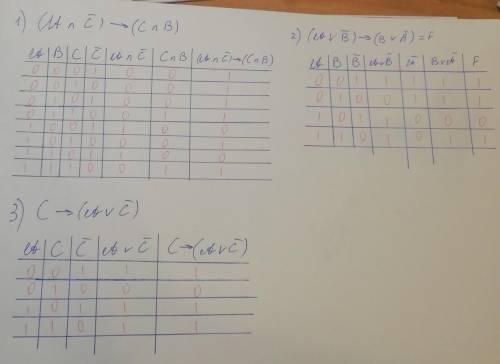 1) (A ∩ C̅) → (C ∩ B)
A B C C̅ A∩C̅ C∩B (A∩C̅)→(C∩B)
0 0 0 1 0 0 1
0 0 1 0 0 0 1
0 1 0 1 0 0 1
0 1 1 0 0 1 1
1 0 0 1 1 0 0
1 0 1 0 0 0 1
1 1 0 1 1 0 0
1 1 1 0 0 1 1
2) (A ∨ B̅) → (B ∨ A̅) = F
A B B̅ A∨B̅ A̅ B∨A̅ F
0 0 1 1 1 1 1
0 1 0 0 1 1 1
1 0 1 1 0 0 0
1 1 0 1 0 1 1
3) C → (A ∨ C̅)
A C C̅ A∨C̅ C→(A∨C̅)
0 0 1 1 1
0 1 0 0 0
1 0 1 1 1
1 1 0 1 1